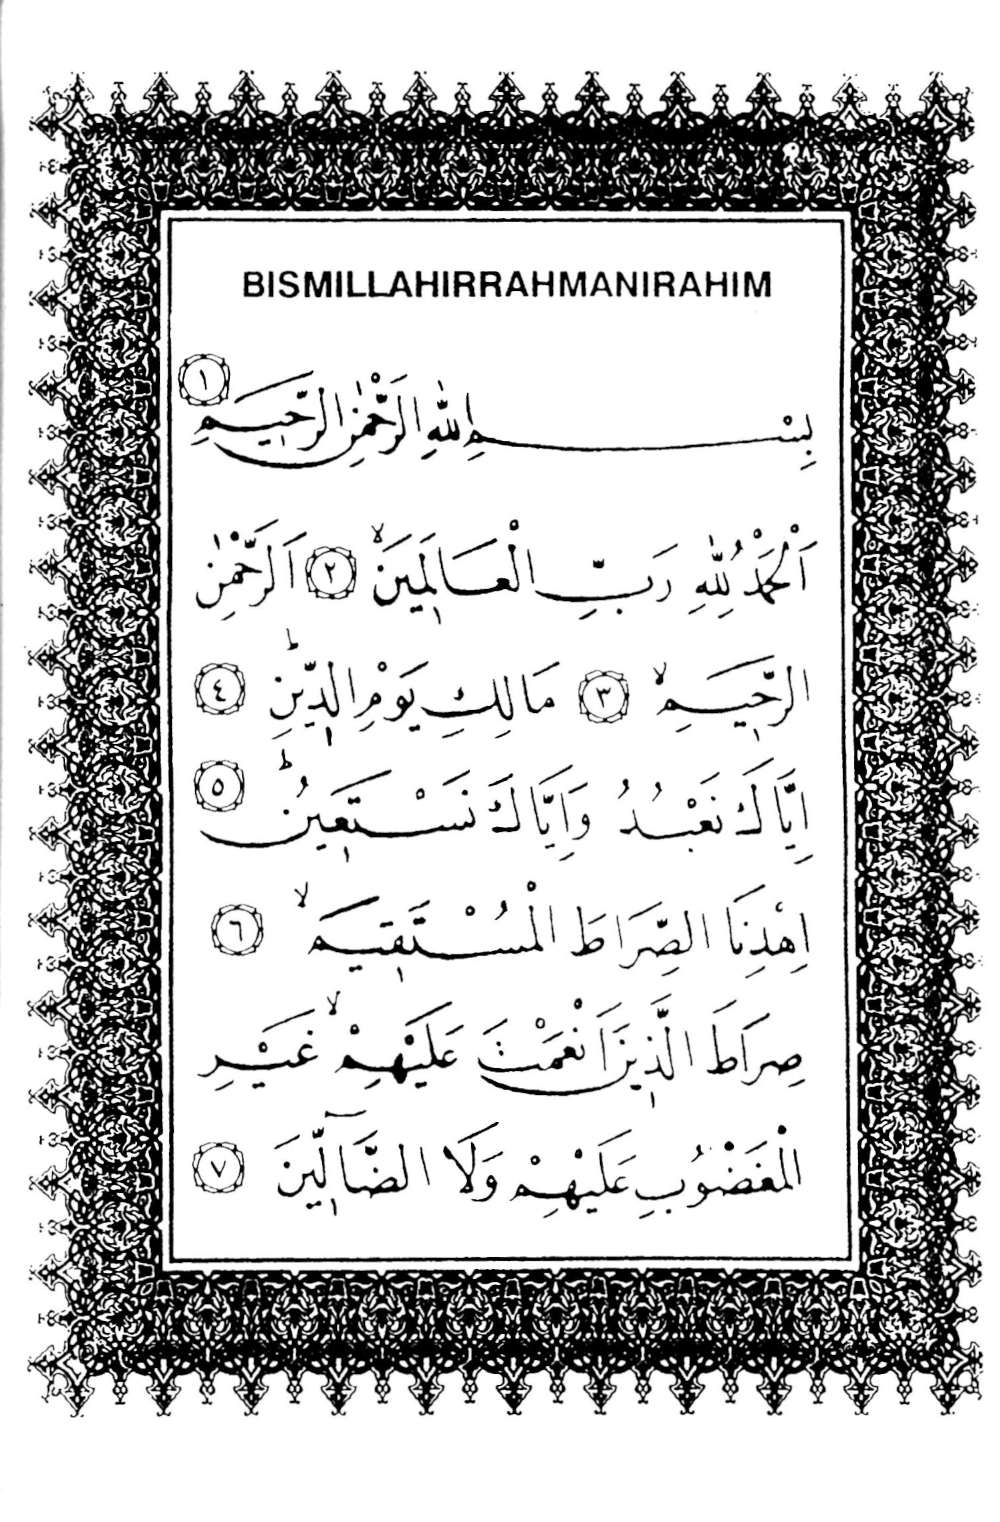 BISMILLAHIRRAHMANIRAHIM
بِسْمِ اللّٰهِ الرَّحْمٰنِ الرَّحٖيمِ ١
اَلْحَمْدُ لِلّٰهِ رَبِّ الْعَالَمٖينَ ۙ ٢ اَلرَّحْمٰنِ
الرَّحٖيمِ ۙ ٣ مَالِكِ يَوْمِ الدّٖينِ ؕ ٤
اِيَّاكَ نَعْبُدُ وَاِيَّاكَ نَسْتَعٖينُ ؕ ٥
اِهْدِنَا الصِّرَاطَ الْمُسْتَقٖيمَ ۙ ٦
صِرَاطَ الَّذٖينَ اَنْعَمْتَ عَلَيْهِمْ ۙ غَيْرِ
الْمَغْضُوبِ عَلَيْهِمْ وَلَا الضَّٓالّٖينَ ٧